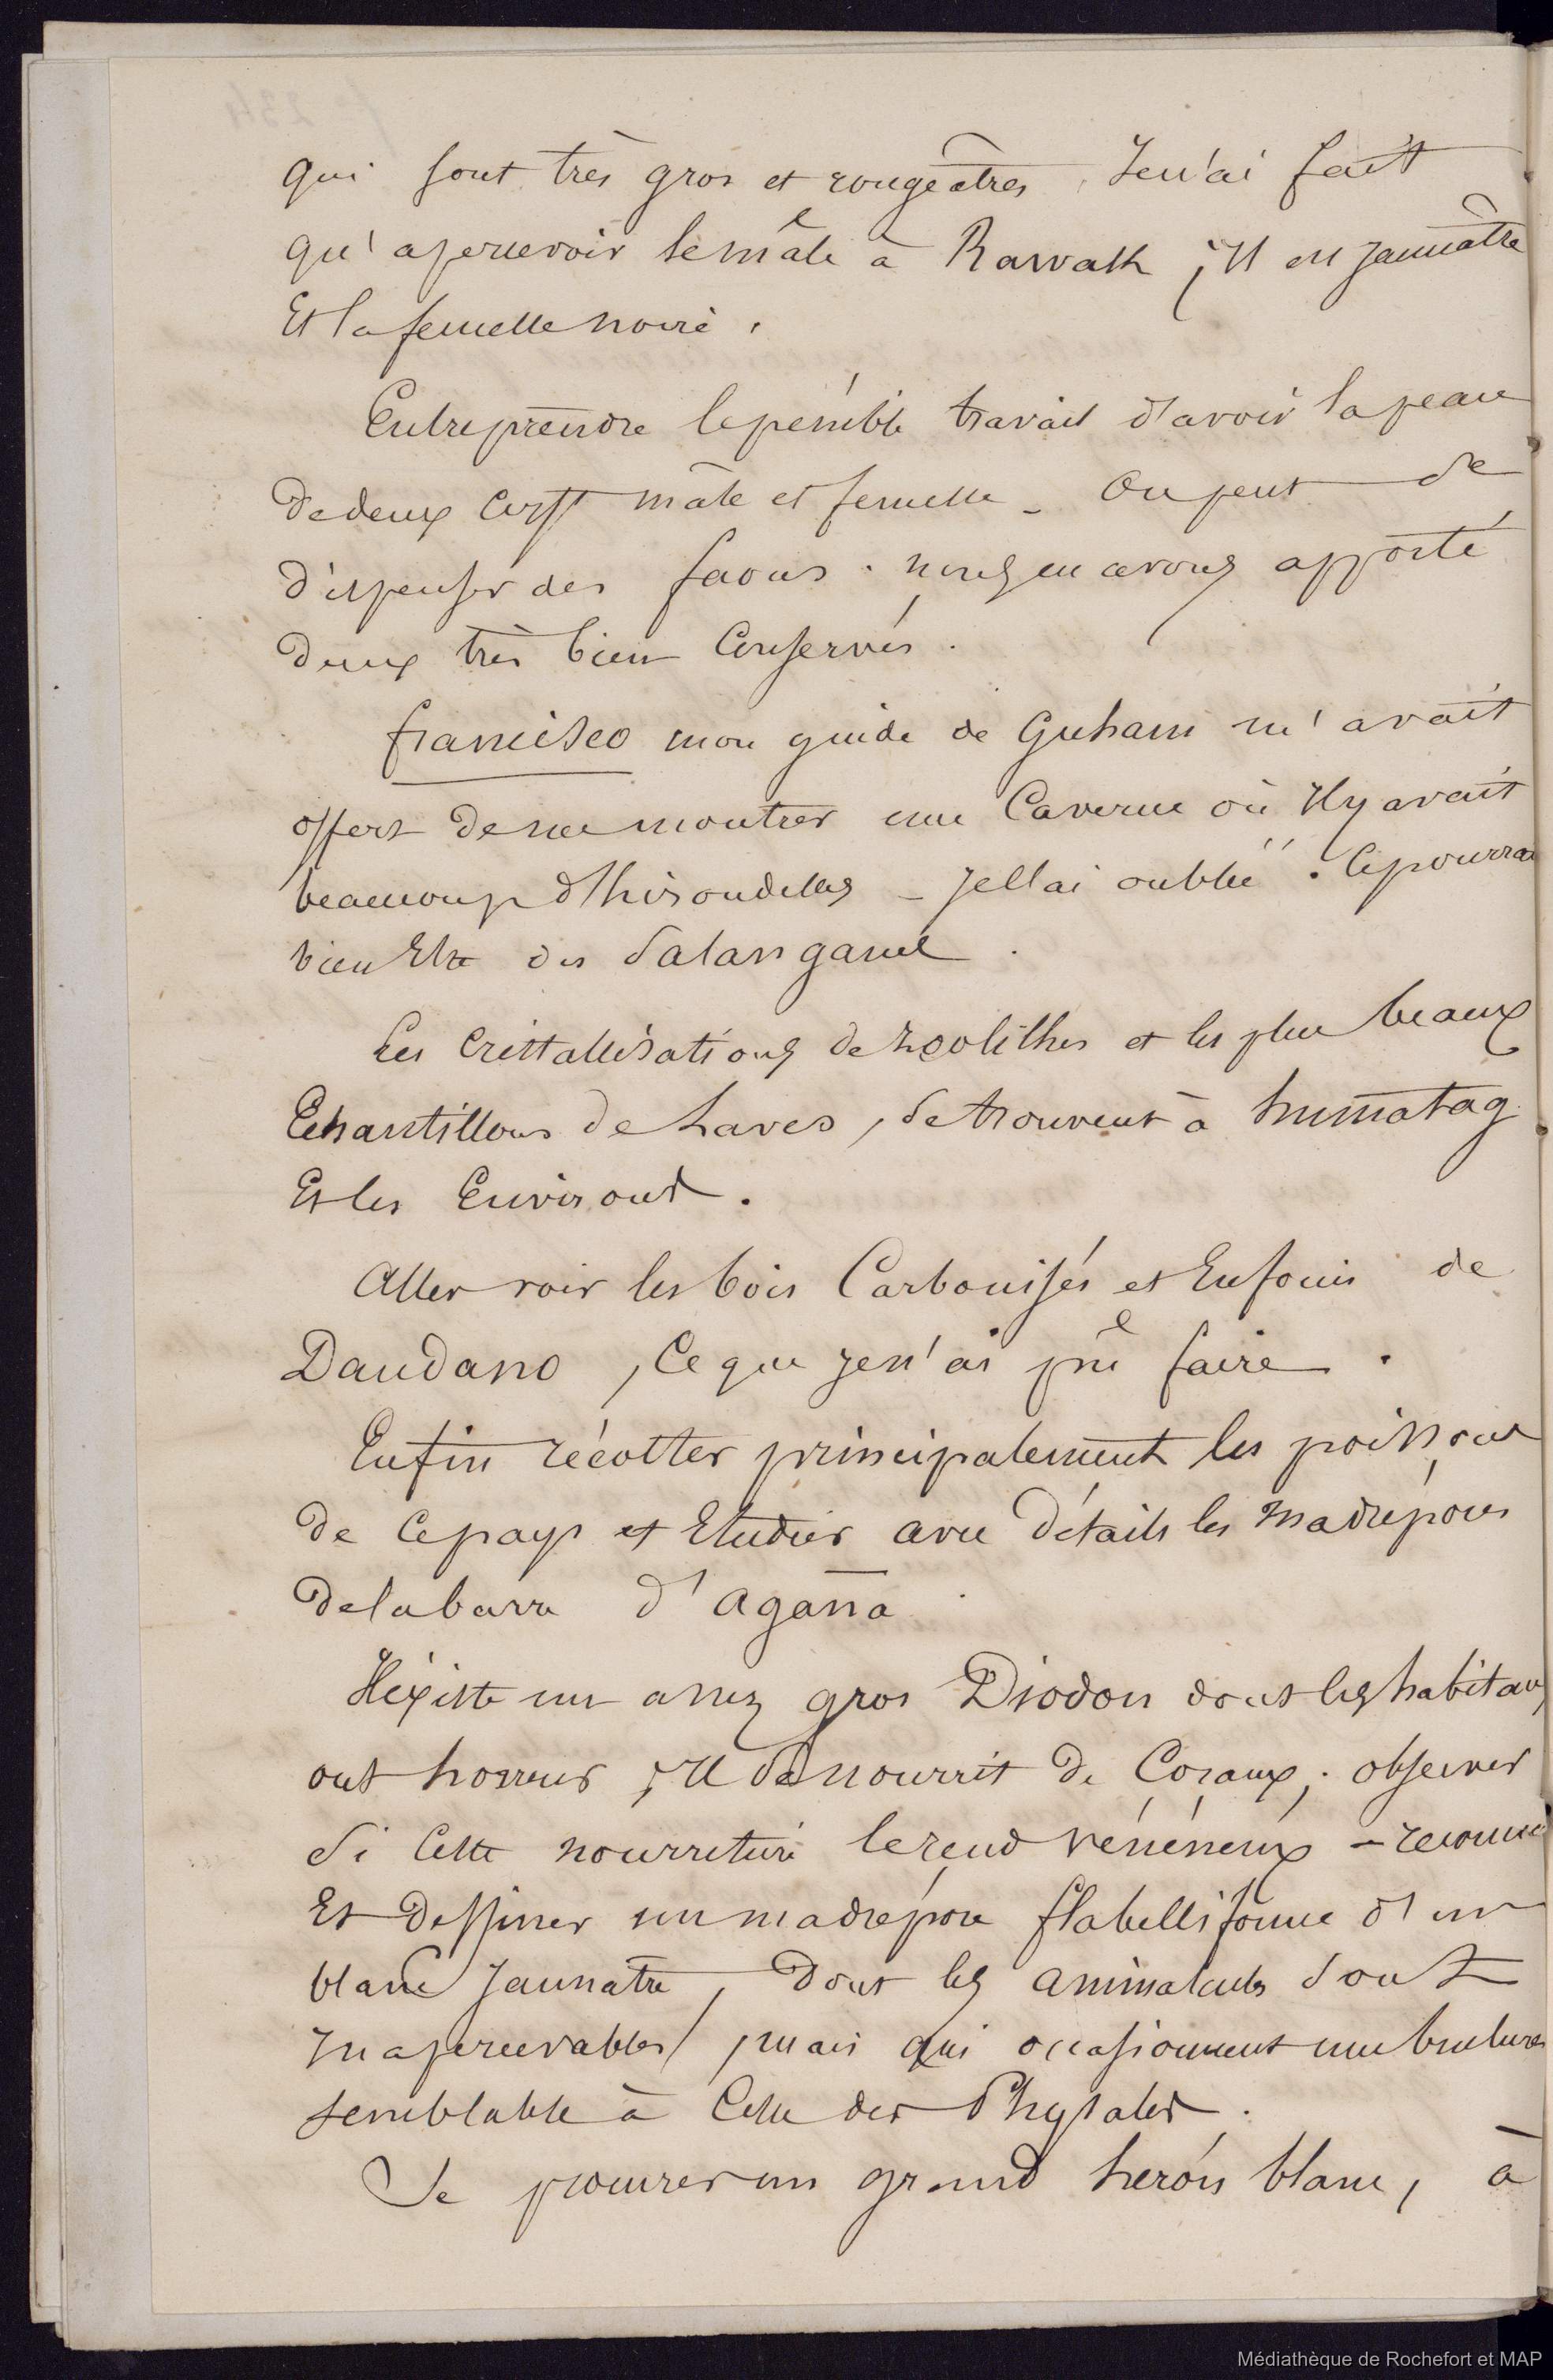 qui sont très gros et rougeâtres. Je n'ai fait
qu'apercevoir le mâle à Rawak ; Il est jaunâtre
Et la femelle noire.
Entreprendre le pénible travail d'avoir la peau
de deux Cerfs mâle et femelle _ On peut se
dispenser des faons. nous en avons apporté
deux très bien Conservés.
francisco mon guide de Guham m'avait
offert de me montrer une Caverne où Il y avait
beaucoup d'hirondelles _ Je l'ai oublié. Ce pourrai
bien Etre des Salanganes.
Les Cristallisations de zoolithes et les plus beaux
Echantillons de Laves, se trouvent à humatag
Et les Environs.
Aller voir les bois Carbonisés et Enfouis de
Dandano, Ce que je n'ai pû faire.
Enfin récolter principalement les poissons
de Ce pays et Etudier avec détails les Madrépores
de la barre d'agaña
Il éxiste un assez gros Diodon dont les habitans
ont horreur ; Il se nourrit de Coraux ; observer
Si Cette nourriture le rend vénéneux _
Et dessiner un madrépore flabelliforme d'un
blanc Jaunatre, dont les animalcules sont
Inapercevables, mais qui occasionnent une brulure
semblable à Celle des Physales.
Se procurer un grand heron blanc, à
Médiathèque de Rochefort et MAP